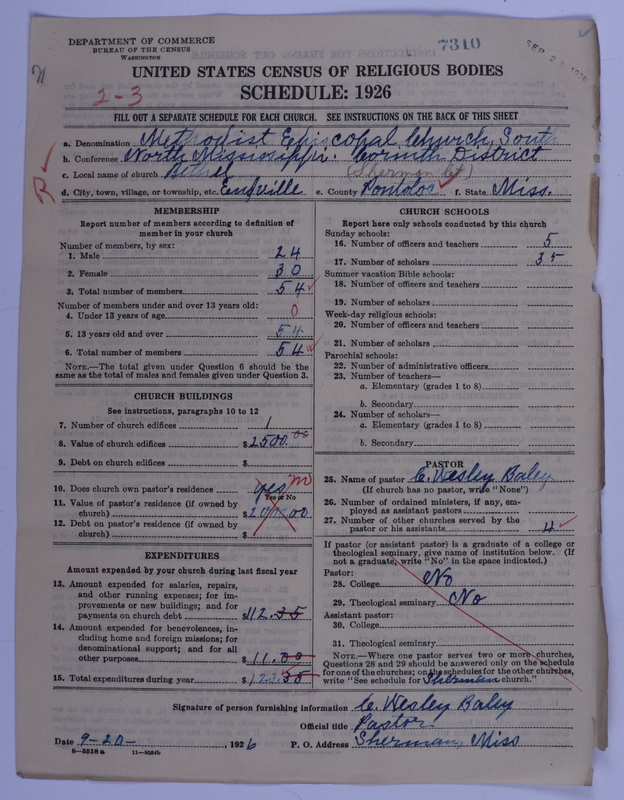 DEPARTMENT OF COMMERCE
BUREAU OF THE CENSUS
WASHINGTON
7310
UNITED STATES CENSUS OF RELIGIOUS BODIES
SCHEDULE: 1926
2-3
FILL OUT A SEPARATE SCHEDULE FOR EACH CHURCH. SEE INSTRUCTIONS ON THE BACK OF THIS SHEET
a. Denomination Methodist Episcopal Church, South
b. Conference North Mississippi. Corinth District
c. Local name of church Bethel (Sherman Ct.)
d. City, town, village, or township, etc. Endville e. County Pontotoc f. State Miss.
R
MEMBERSHIP
Report number of members according to definition of
member in your church
Number of members, by sex:
1. Male 24
2. Female 30
3. Total number of members 54
Number of members under and over 13 years old:
4. Under 13 years of age 0
5. 13 years old and over 54
6. Total number of members 54
NOTE.—The total given under Question 6 should be the
same as the total of males and females given under Question 3.
CHURCH BUILDINGS
See instructions, paragraphs 10 to 12
7. Number of church edifices 1
8. Value of church edifices $2500.00
9. Debt on church edifices $
10. Does church own pastor's residence yes no
Yes or No
11. Value of pastor's residence (if owned by
church) $2000.00
12. Debt on pastor's residence (if owned by
church) $
EXPENDITURES
Amount expended by your church during last fiscal year
13. Amount expended for salaries, repairs,
and other running expenses; for im-
provements or new buildings; and for
payments on church debt $112.35
14. Amount expended for benevolences, in-
cluding home and foreign missions; for
denominational support; and for all
other purposes $11.00
15. Total expenditures during year $123.35
CHURCH SCHOOLS
Report here only schools conducted by this church
Sunday schools:
16. Number of officers and teachers 5
17. Number of scholars 35
Summer vacation Bible schools:
18. Number of officers and teachers
19. Number of scholars
Week-day religious schools:
20. Number of officers and teachers
21. Number of scholars
Parochial schools:
22. Number of administrative officers
23. Number of teachers—
a. Elementary (grades 1 to 8)
b. Secondary
24. Number of scholars—
a. Elementary (grades 1 to 8)
b. Secondary
PASTOR
25. Name of pastor C. Wesley Baley
(If church has no pastor, write "None")
26. Number of ordained ministers, if any, em-
ployed as assistant pastors
27. Number of other churches served by the
pastor or his assistants 4
If pastor (or assistant pastor) is a graduate of a college or
theological seminary, give name of institution below. (If
not a graduate, write "No" in the space indicated.)
Pastor:
28. College No
29. Theological seminary No
Assistant pastor:
30. College
31. Theological seminary
NOTE.—Where one pastor serves two or more churches,
Questions 28 and 29 should be answered only on the schedule
for one of the churches; on the schedules for the other churches,
write "See schedule for Sherman church."
Signature of person furnishing information C. Wesley Baley
Official title Pastor
Date 9-20-, 1926 P. O. Address Sherman, Miss
8-5518a 11-9054b